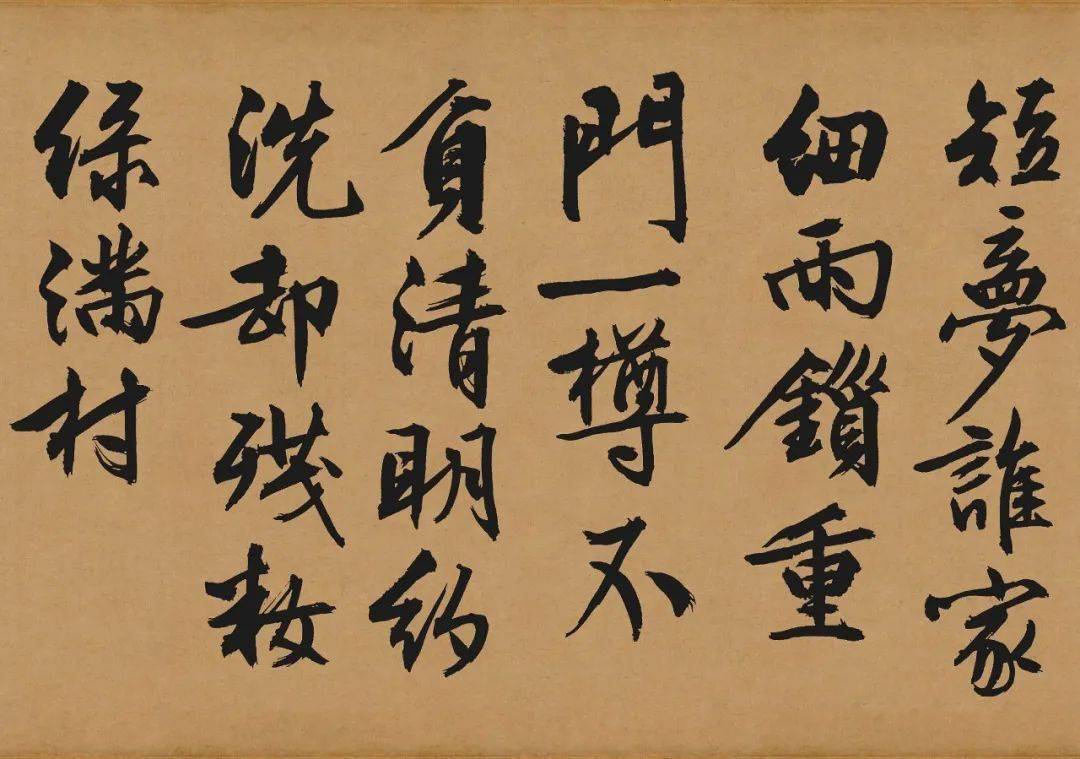 短夢誰家
細雨鎖重
門一樽不
負清明約
洗却殘妝
綠滿村